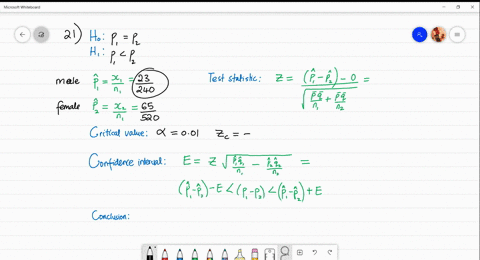 Microsoft Whiteboard
21) H₀: p₁ = p₂
H₁: p₁ < p₂
male p̂₁ = x₁/n₁ = 23/240
Test statistic: z = ((p̂₁ - p̂₂) - 0) / √(p̄q̄/n₁ + p̄q̄/n₂) =
female p̂₂ = x₂/n₂ = 65/520
Critical value: α = 0.01 z_c = -
Confidence interval: E = z √(p̂₁q̂₁/n₁ - p̂₂q̂₂/n₂) =
(p̂₁-p̂₂) - E < (p₁-p₂) < (p̂₁-p̂₂) + E
Conclusion: